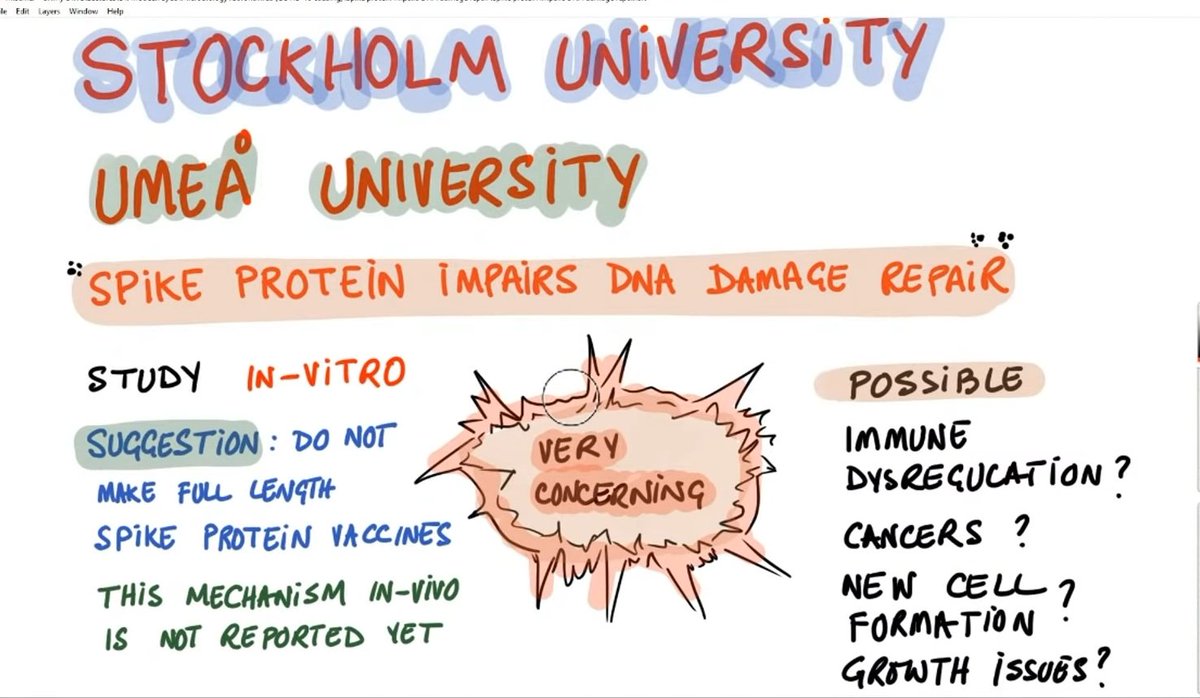 Edit Layers Window Help
STOCKHOLM UNIVERSITY
UMEÅ UNIVERSITY
SPIKE PROTEIN IMPAIRS DNA DAMAGE REPAIR
STUDY IN-VITRO
SUGGESTION: DO NOT
MAKE FULL LENGTH
SPIKE PROTEIN VACCINES
THIS MECHANISM IN-VIVO
IS NOT REPORTED YET
VERY
CONCERNING
POSSIBLE
IMMUNE
DYSREGUCATION?
CANCERS ?
NEW CELL
FORMATION ?
GROWTH ISSUES?